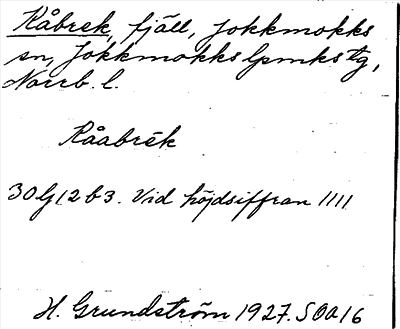 Råbrek, fjäll, Jokkmokks
sn, Jokkmokks lpmks tg,
Norrb. l.
Råabrēk
30 G 12 b 3. Vid höjdsiffran 1111
H. Grundström 1927. SOA 16